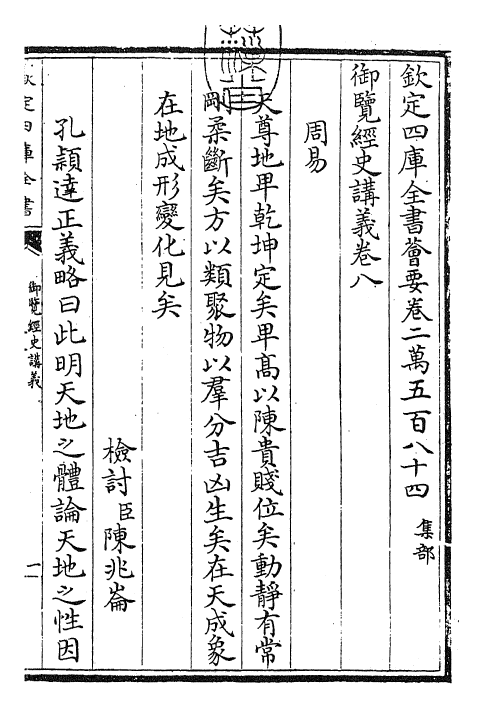 欽定四庫全書薈要卷二萬五百八十四 集部
御覽經史講義卷八
周易
天尊地卑乾坤定矣卑高以陳貴賤位矣動靜有常
剛柔斷矣方以類聚物以羣分吉凶生矣在天成象
在地成形變化見矣
檢討臣陳兆崙
孔穎達正義略曰此明天地之體論天地之性因
欽定四庫全書
御覽經史講義
一